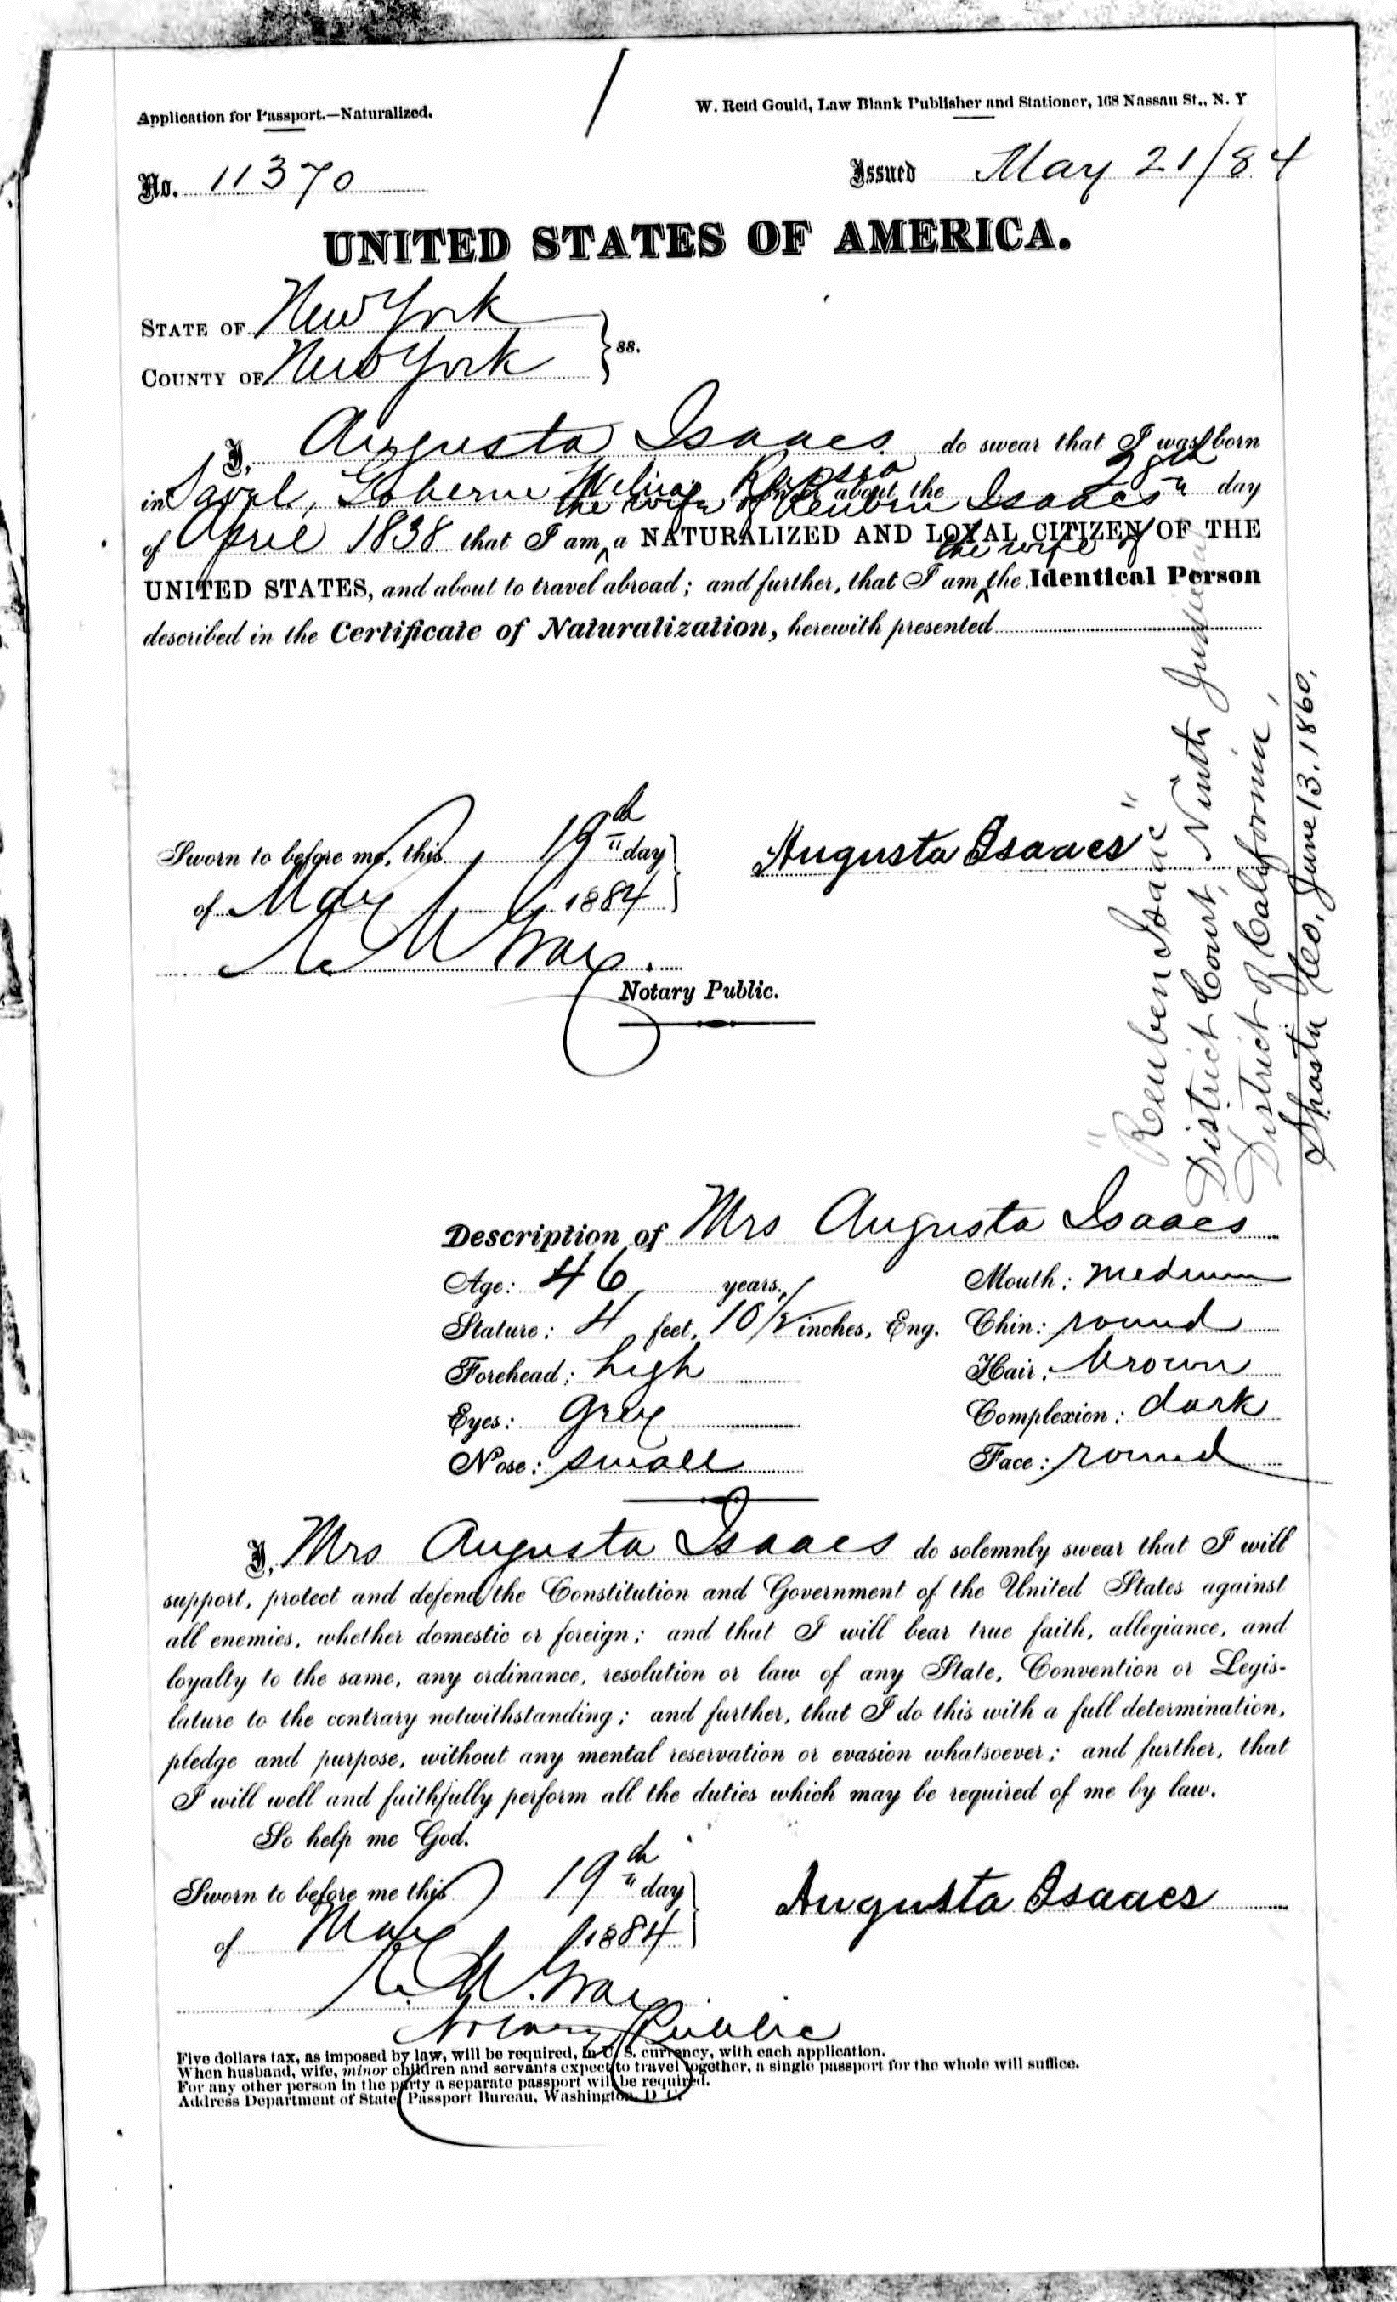 Application for Passport.—Naturalized.
W. Reid Gould, Law Blank Publisher and Stationer, 168 Nassau St., N. Y
No. 11370
Issued May 21/84
UNITED STATES OF AMERICA.
STATE OF New York
COUNTY OF New York } ss.
I, Augusta Isaacs do swear that I was born
in Russia on or about the 28th day
the wife of Reuben Isaacs
of April 1838 that I am a NATURALIZED AND LOYAL CITIZEN OF THE
the wife of
UNITED STATES, and about to travel abroad; and further, that I am the Identical Person
described in the Certificate of Naturalization, herewith presented
Sworn to before me, this 19th day
of May 1884
Augusta Isaacs
Notary Public.
"Reuben Isaac"
District Court, Ninth
District of California,
Shasta Co, June 13. 1860.
Description of Mrs Augusta Isaacs
Age: 46 years, Mouth: medium
Stature: 4 feet, 10 1/2 inches, Eng. Chin: round
Forehead: high Hair: brown
Eyes: grey Complexion: dark
Nose: small Face: round
I, Mrs Augusta Isaacs do solemnly swear that I will
support, protect and defend the Constitution and Government of the United States against
all enemies, whether domestic or foreign; and that I will bear true faith, allegiance, and
loyalty to the same, any ordinance, resolution or law of any State, Convention or Legis-
lature to the contrary notwithstanding; and further, that I do this with a full determination,
pledge and purpose, without any mental reservation or evasion whatsoever; and further, that
I will well and faithfully perform all the duties which may be required of me by law.
So help me God.
Sworn to before me this 19th day
of May 1884
Augusta Isaacs
Notary Public
Five dollars tax, as imposed by law, will be required, in U. S. currency, with each application.
When husband, wife, minor children and servants expect to travel together, a single passport for the whole will suffice.
For any other person in the party a separate passport will be required.
Address Department of State, Passport Bureau, Washington, D. C.